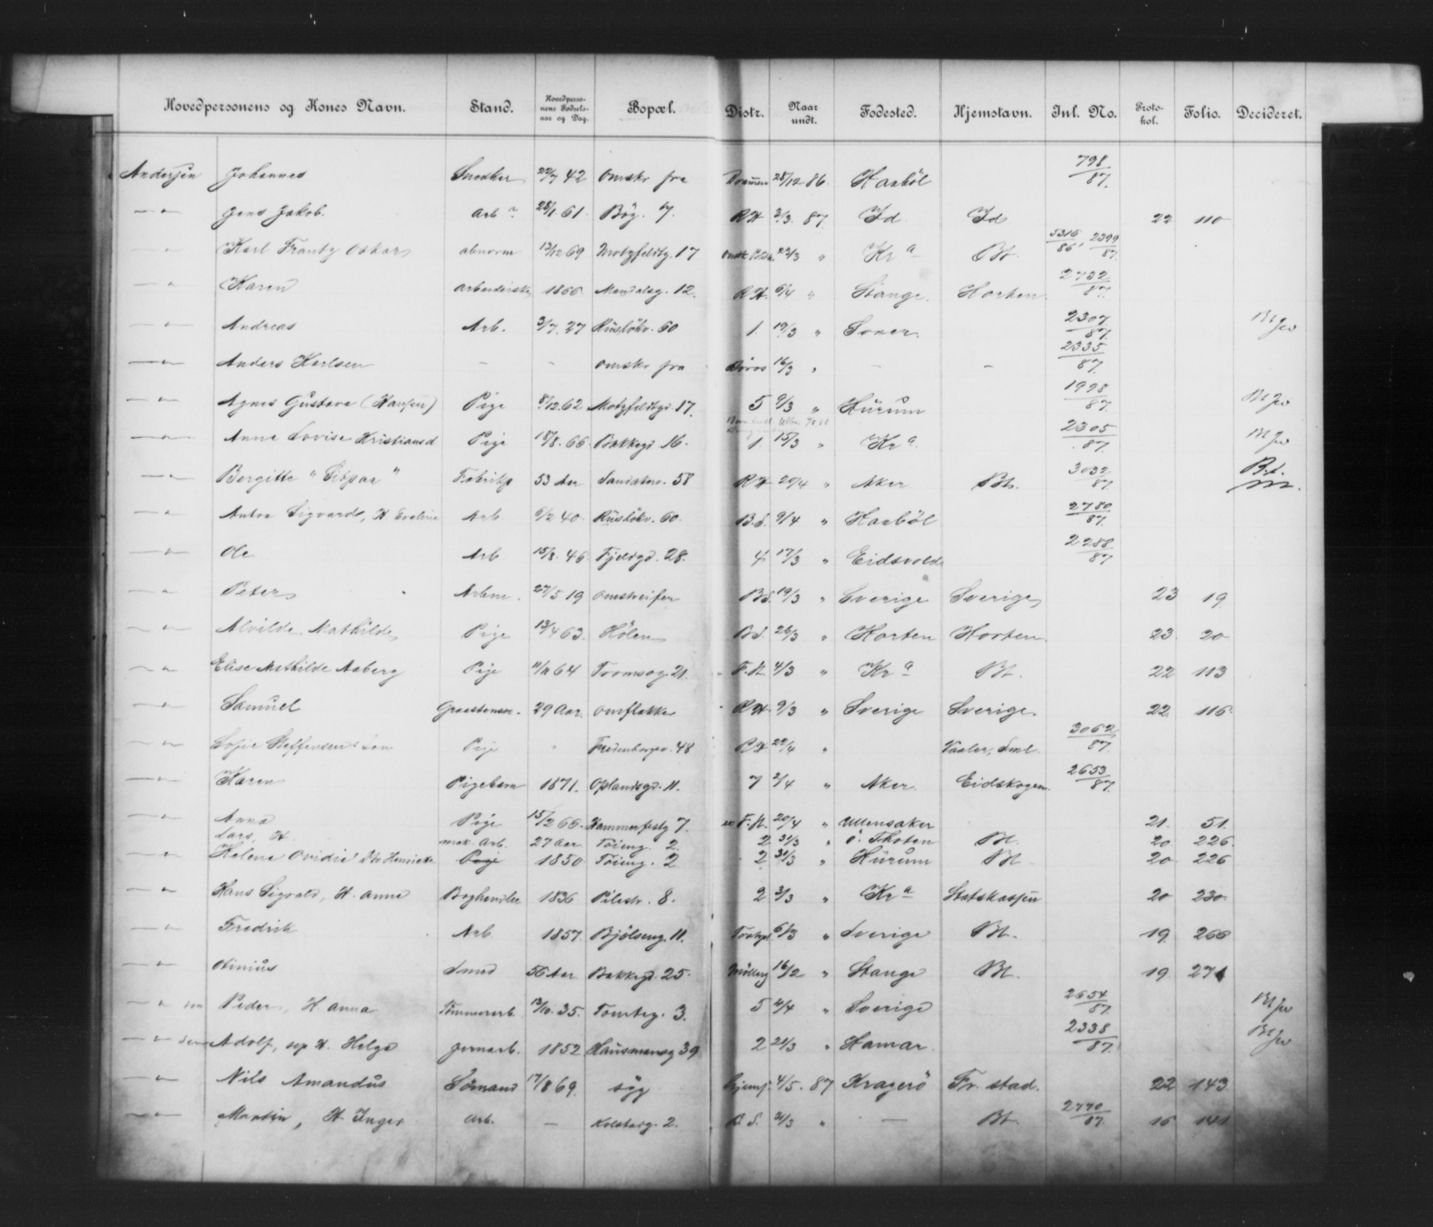 Hovedpersonens og Kones Navn. Stand. Hovedpersonens Fødselsaar og Dag. Bopæl. Distr. Naar undt. Fødested. Hjemstavn. Inl. No. Protokol. Folio. Decideret.
Andersen Johannes Snedker 22/7 42 omstr fra Drammen 28/12 86. Haabøl 798/87.
— " — Jens Jakob. Arb 28/1 61. Bøg. 7. R.H. 2/3. 87 Id Id 22 110
— " — Karl Frantz Oskar abnorm 13/12 69 Motzfeldtg. 17 22/3 " Kra Bt. 5316/86, 2399/87.
— " — Karen Arbeiderske 1866 Mandalsg. 12. R.H. 6/4 " Stange. Horten. 2732/87.
— " — Andreas Arb. 3/7. 27 Rustökv. 60 1 19/3 " Soner. 2307/87.
— " — Anders Karlsen – – omstr fra Röros 16/3 " – – 2335/87.
— " — Agnes Gustava (Hansen) Pige 8/12 62 Motzfeldtgd. 17. 5 9/3 " Hurum 1998/87.
— " — Anna Lovise Kristiansd Pige 18/8. 66. Bakkegd. 16. 1 15/3 " Kra. 2305/87.
— " — Bergitte Fabrikp 53 Aar 58 R.H. 20/4 " Aker Bt. 3032/87 Bt.
— " — Anton Sigvard, H. Eveline Arb 6/2 40. Rustökv. 60. B.S. 9/4 " Haabøl 2780/87.
— " — Ole Arb 15/8. 46 Fjeldgd. 28. 4 17/3 " Eidsvold 2288/87
— " — Peter Arbm. 27/5 19 omstreifer B.S. 19/3 " Sverige Sverige 23 19
— " — Alvilde Mathilde Pige 13/4 63. Hölen B.S. 26/3 " Horten Horten. 23. 20
— " — Elise Mathilde Aaberg Pige 11/11 64 Tromsøg. 21. F.K. 4/3 " Kra Bt. 22 113
— " — Samuel 29 Aar. omflakker R.H. 9/3 " Sverige Sverige. 22. 116
— " — Sofie Steffensen Pige " Fredensborgv. 48 R.H 22/4 " Vaaler, Sml. 3062/87.
— " — Karen Pigebarn 1871. Oplandsgd. 11. 7 2/4 " Aker Eidskogen. 2653/87.
— " — Anna Pige 15/2 66. Hammerfestg 7. F.K. 20/4 " Ullensaker 21. 51.
Lars, H. mek. Arb. 27 Aar Töieng. 2. 2 31/3 " Ö. Thoten Bt. 20 226.
— " — Helene Ovidie Pige 1850 Töieng. 2 2 31/3 " Hurum Bt 20 226
— " — Hans Sigvald, H. Anna Boghandler 1836 Pilestr. 8. 2 3/3 " Kra Statskassen 20 230.
— " — Fredrik Arb. 1857. Bjölseng. 11. 6/3 " Sverige Bt. 19. 266
— " — Olinius Smed 56 Aar Bakkegd. 25. Mölleng 16/2 " Stange Bt. 19 271
— " — sen Peder, H. Anna Tömmerarb 13/10. 35. Tomteg. 3. 5 4/4 " Sverige 2654/87.
— " — Adolf, sep H. Helga Jernarb. 1852 Hausmannsg 39 2 21/3 " Hamar. 2338/87.
— " — Nils Amandus Sömand 17/8 69. syg 4/5. 87 Kragerö Fr. stad. 22 143.
— " — Martin, H. Inger Arb. — Kolstadg. 2. B.S. 21/3 " — Bt. 2770/87. 16 141